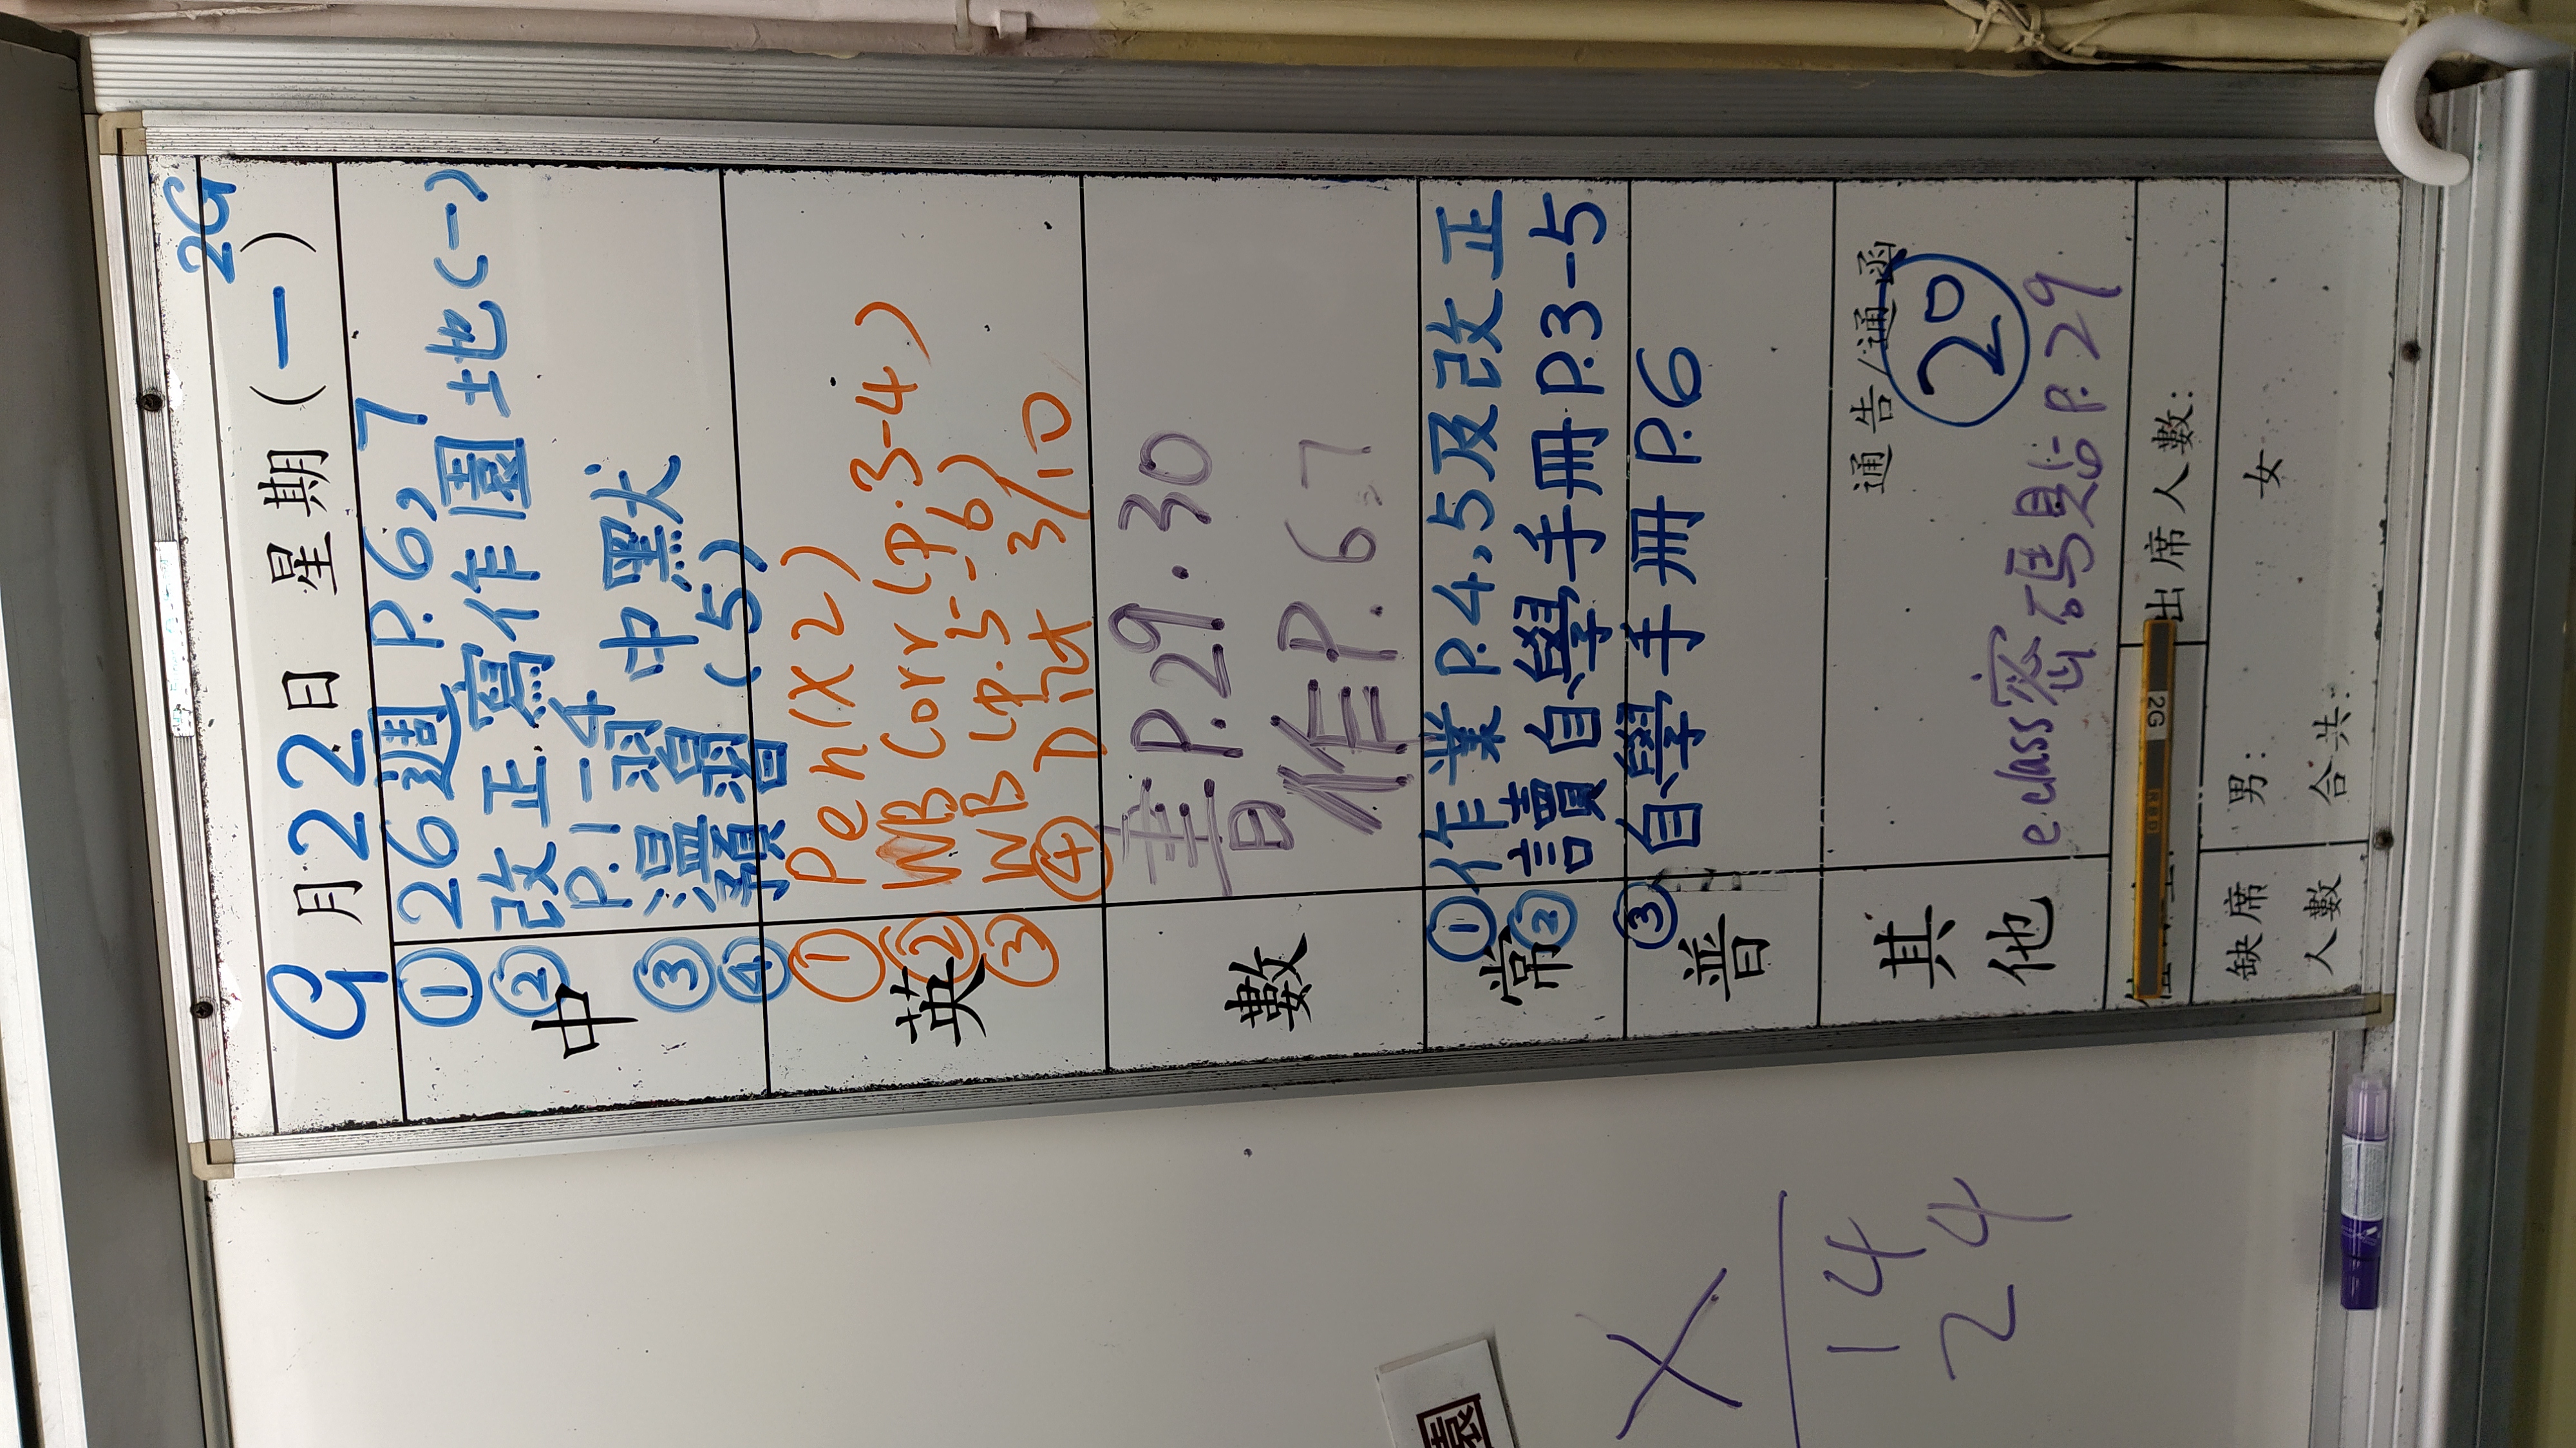 2G
9月22日 星期(一)
中
①26週 P.6,7
②改正寫作園地(一)
P.1-4
③溫習 中默
④預習(5)
英
① Pen (X2)
② WB Corr (p.3-4)
③ WB (p.5-6)
④ Dict 3/10
數
書P.29.30
作P.6.7
常
①作業P.4,5及改正
②讀自學手冊P.3-5
③自學手冊P.6
普
其他
通告/通函
20
eclass密碼見 P.29
2G
出席人數:
缺席人數
男:
女
合共:
X
14
24